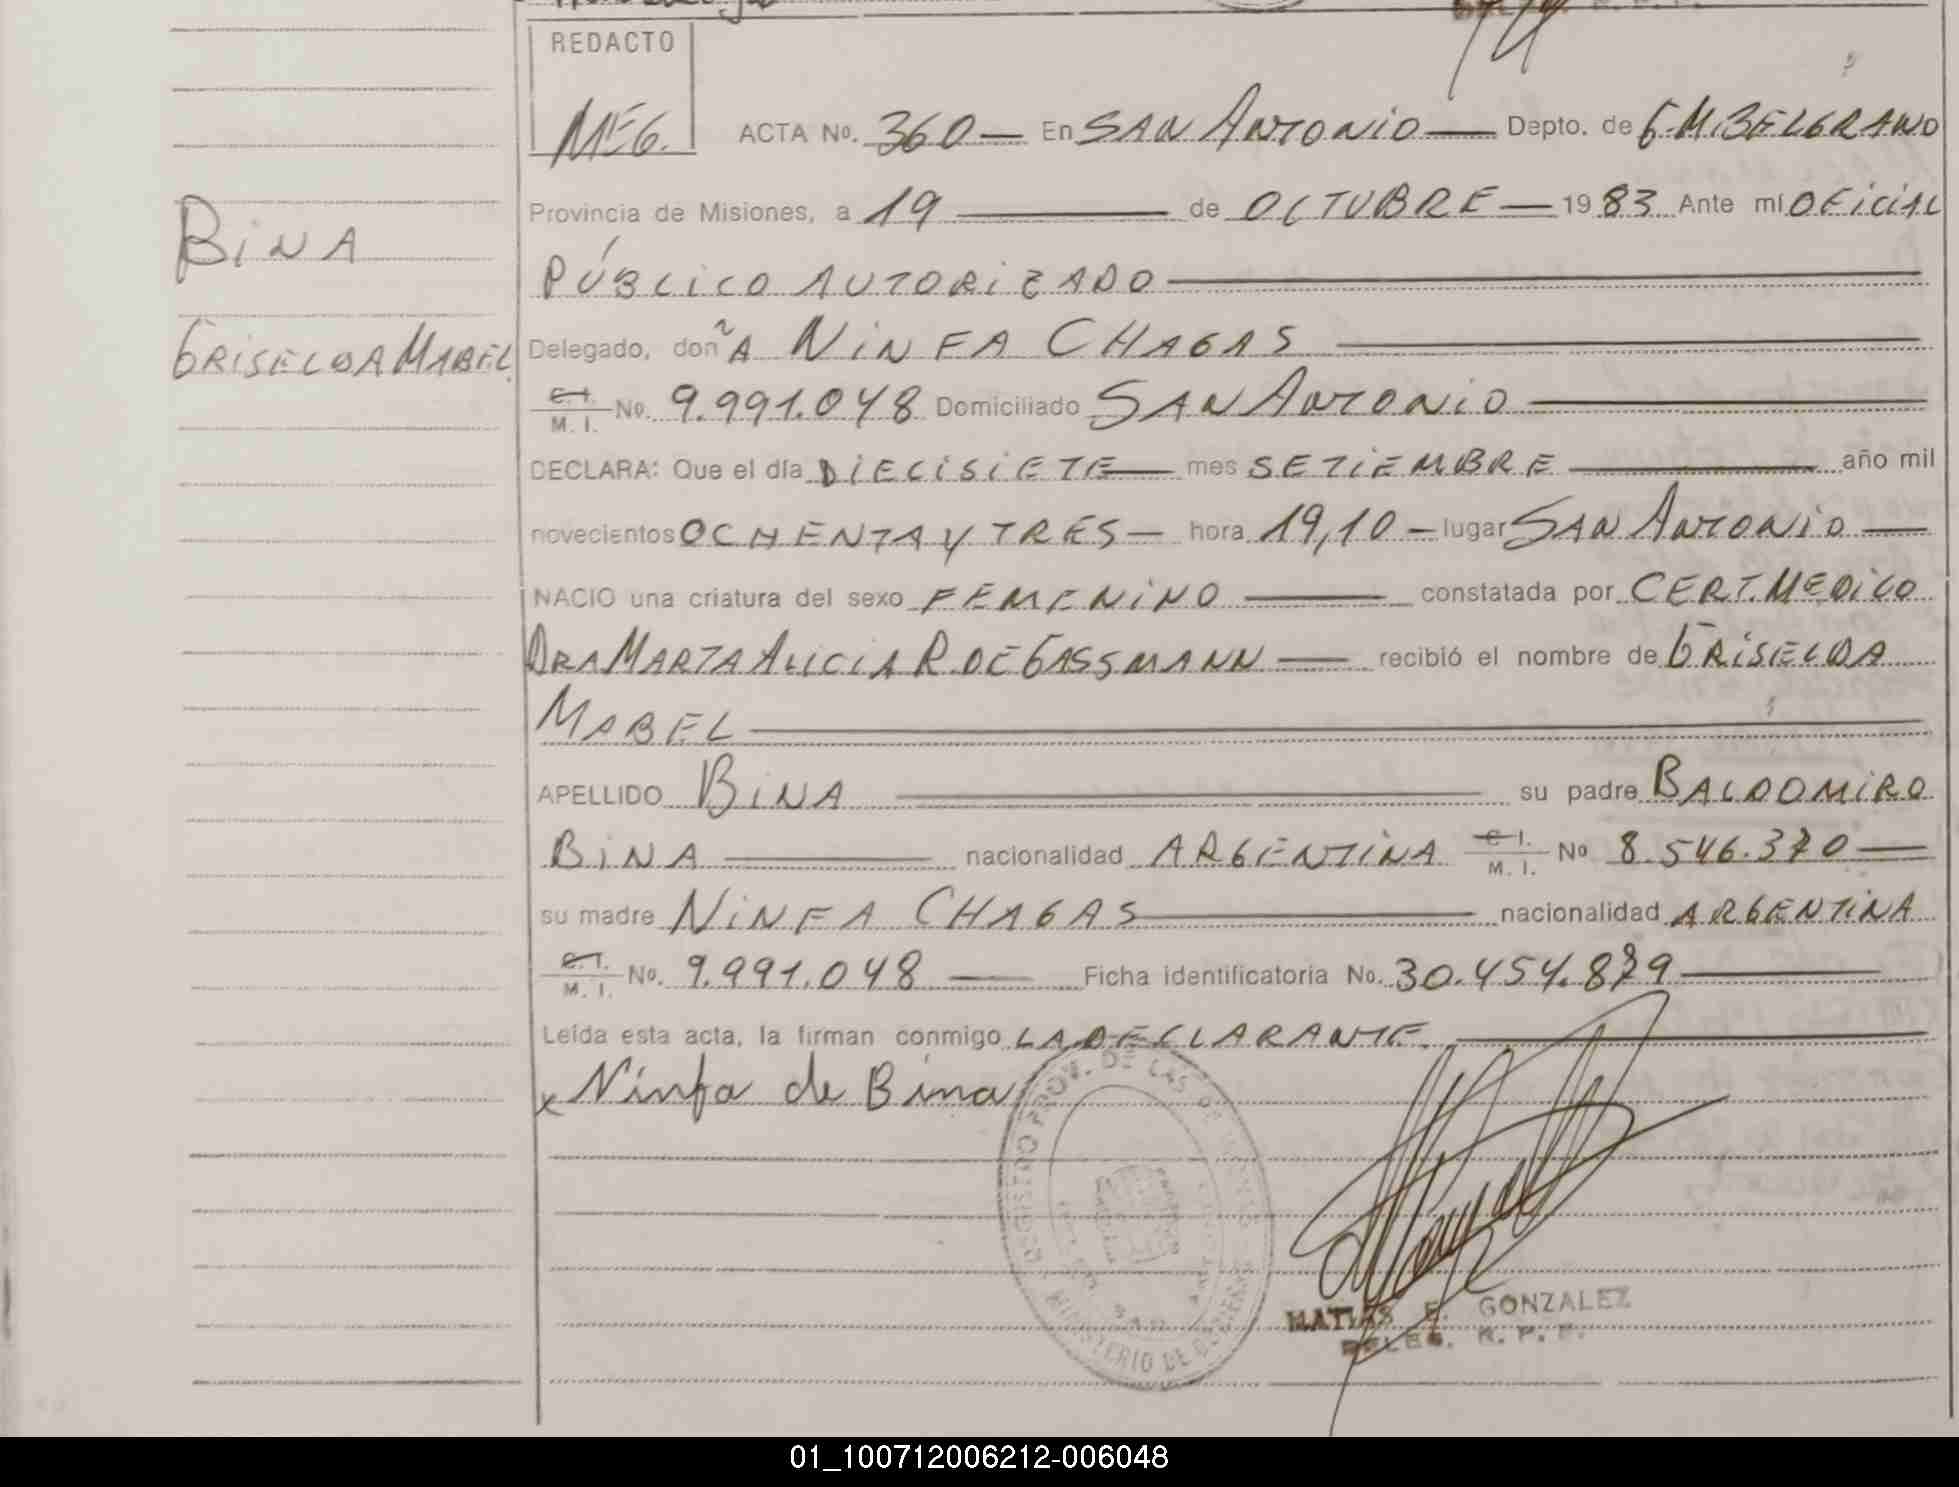 REDACTO
MEG.
ACTA No. 360 — En SAN ANTONIO — Depto. de G.M.BELGRANO
Provincia de Misiones, a 19 — de OCTUBRE — 1983 Ante mí OFICIAL
PÚBLICO AUTORIZADO —
BINA
GRISELDA MABEL
Delegado, doñA NINFA CHAGAS —
C.I. / M. I. No. 9.991.048 Domiciliado SAN ANTONIO —
DECLARA: Que el día DIECISIETE — mes SETIEMBRE — año mil
novecientos OCHENTA Y TRES — hora 19,10 — lugar SAN ANTONIO —
NACIO una criatura del sexo FEMENINO — constatada por CERT. MEDICO
DRA MARTA ALICIA R. DE GASSMANN — recibió el nombre de GRISELDA
MABEL —
APELLIDO BINA — su padre BALDOMIRO
BINA — nacionalidad ARGENTINA C.I. / M. I. No 8.546.370 —
su madre NINFA CHAGAS — nacionalidad ARGENTINA
C.I. / M. I. No. 9.991.048 — Ficha identificatoria No. 30.454.879 —
Leída esta acta, la firman conmigo LA DECLARANTE. —
x Ninfa de Bina
REGISTRO PROV. DE LAS PERSONAS
MINISTERIO DE GOBIERNO
MATIAS F. GONZALEZ
DELEG. R. P. P.
01_100712006212-006048